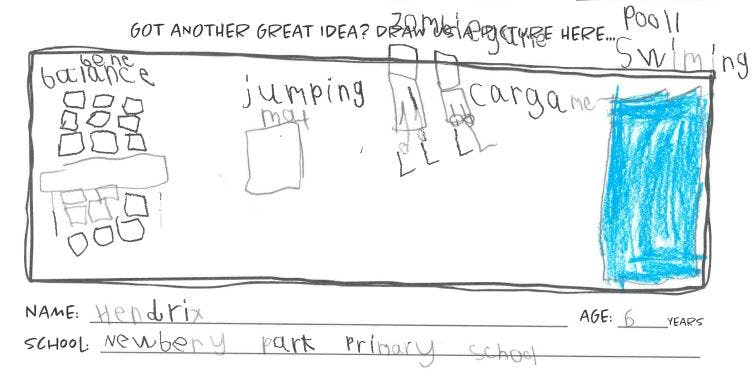 GOT ANOTHER GREAT IDEA? DRAW US A PICTURE HERE...
zombie game
Pooll
Swiming
bene
balance
jumping
mat
cargame
NAME: Hendrix
AGE: 6 YEARS
SCHOOL: Newbery park Primary school